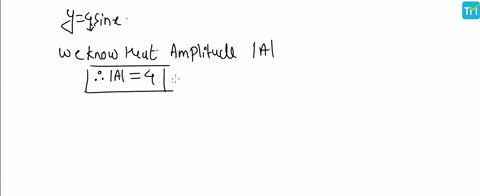 y=4sinx.
We know that Amplitude |A|
∴ |A| = 4